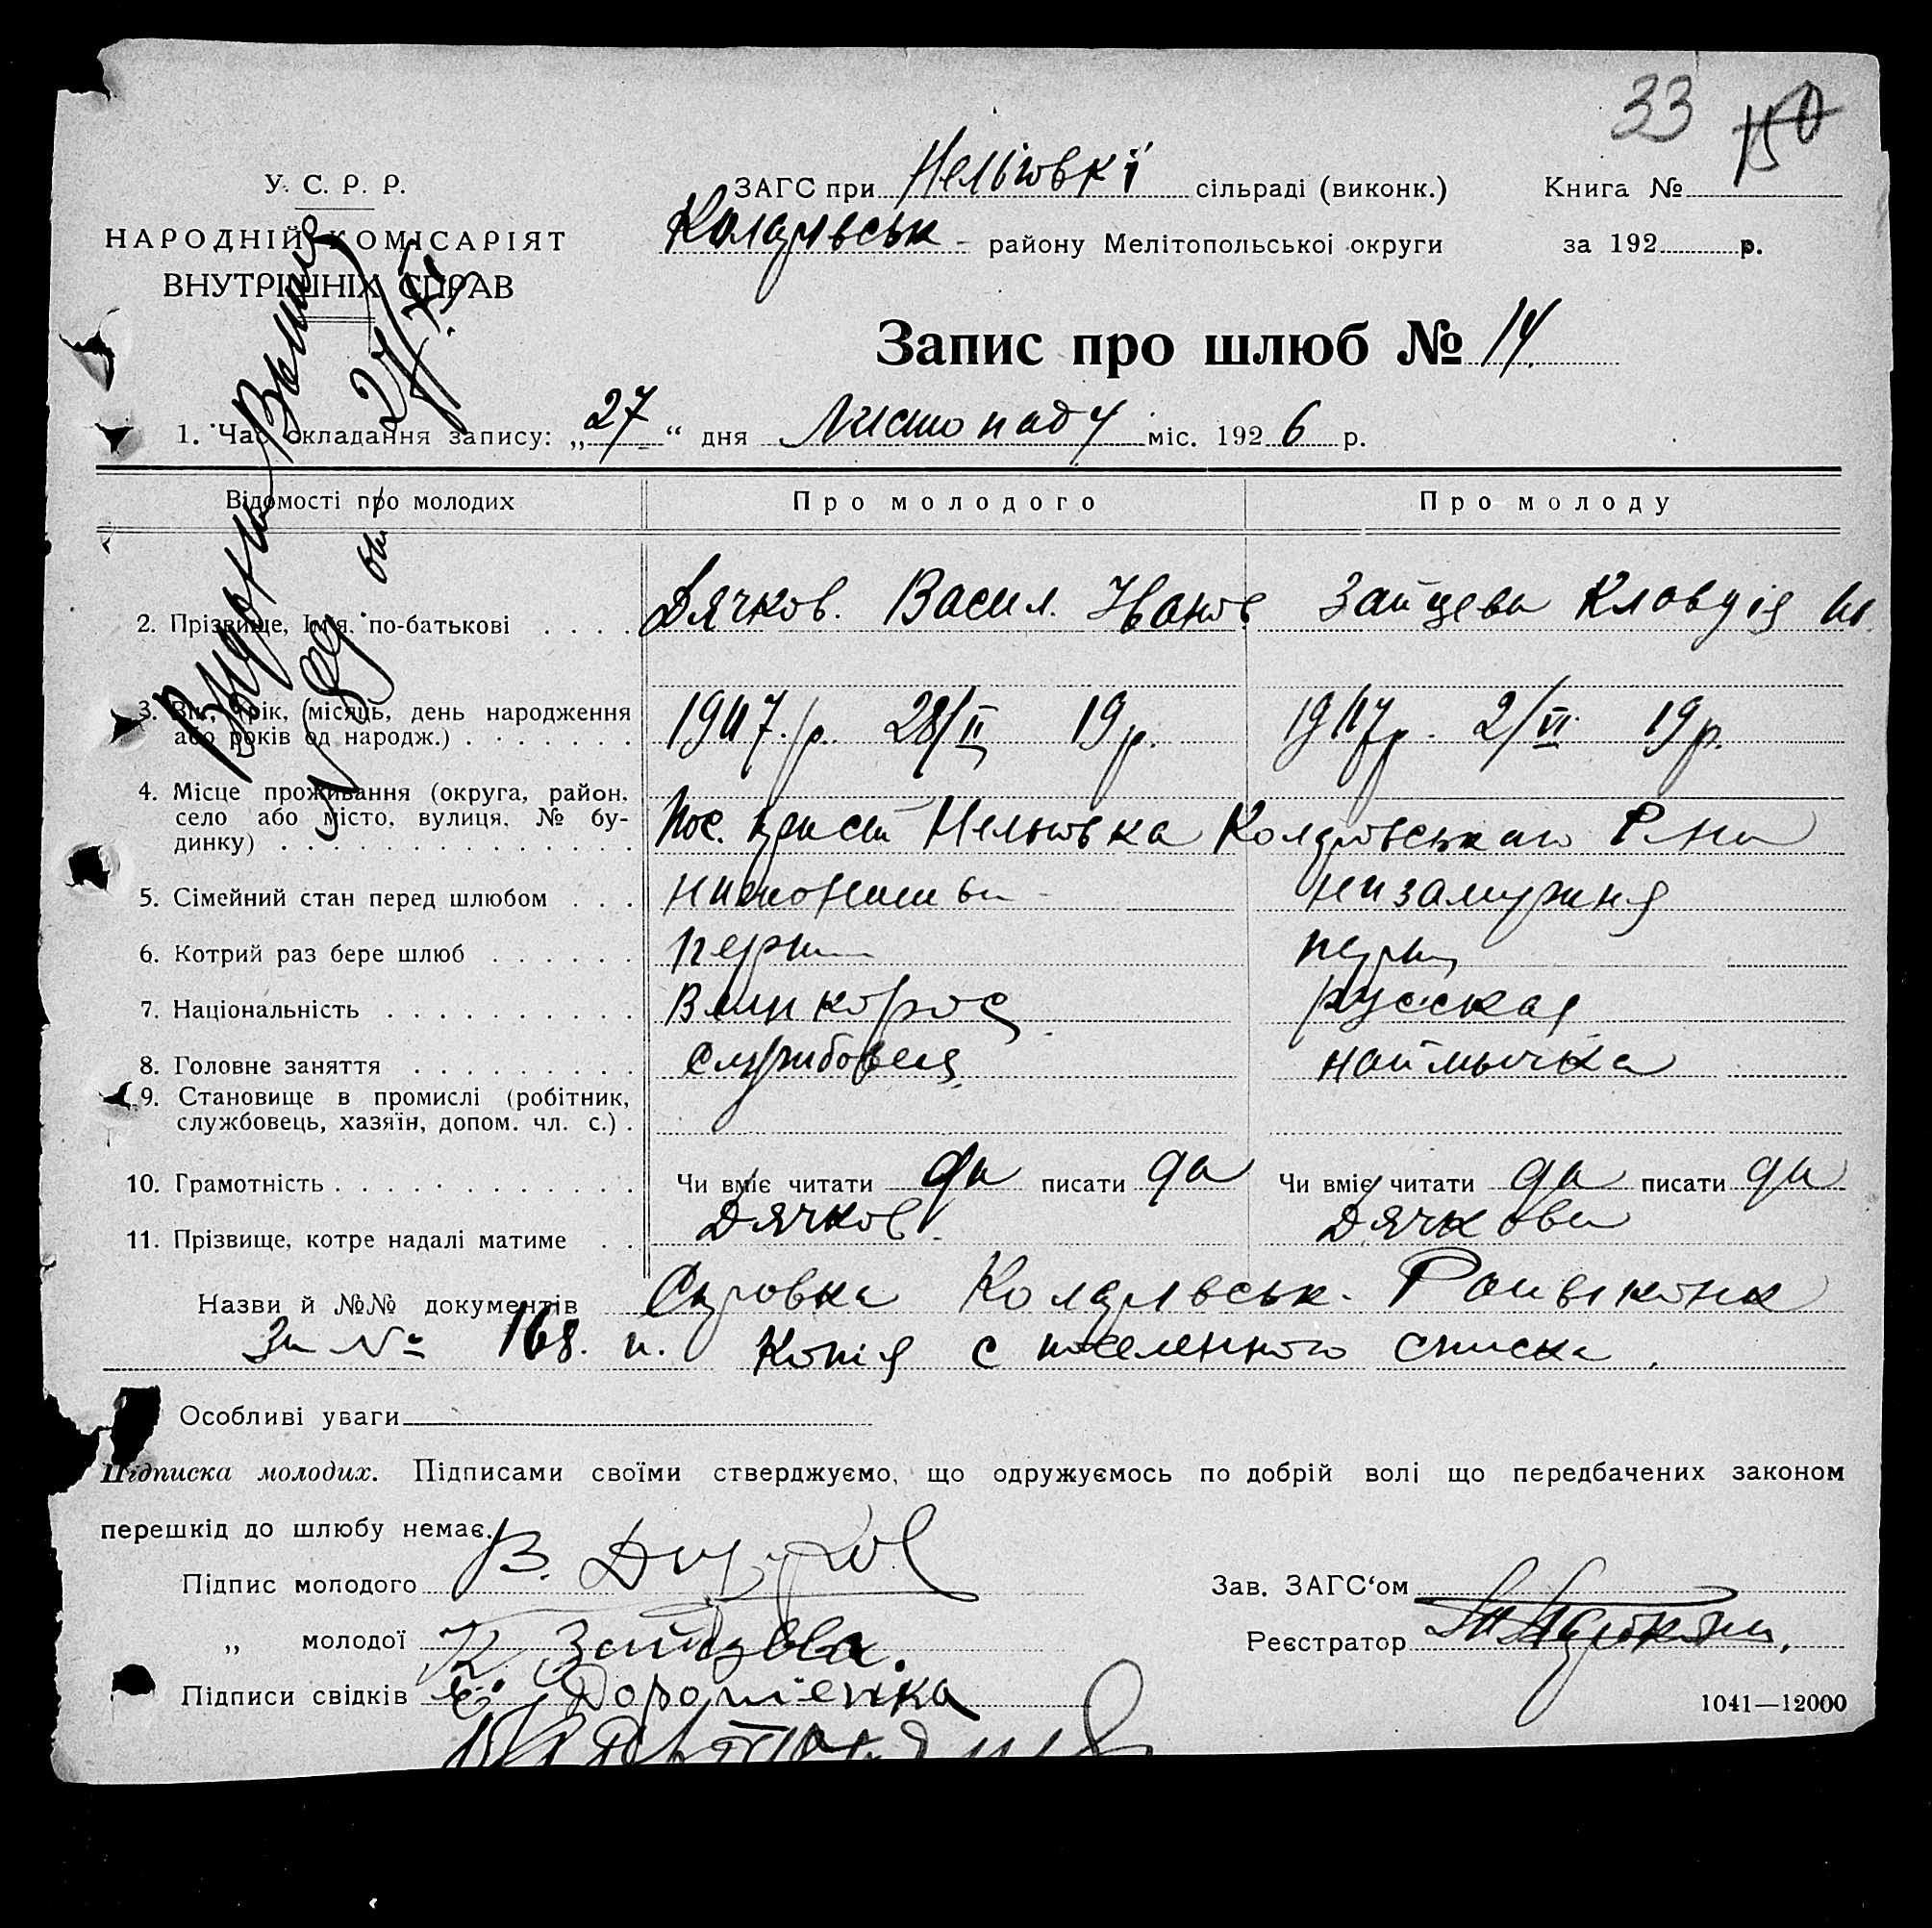 33 150
У. С. Р. Р.
НАРОДНІЙ КОМІСАРІЯТ
ВНУТРІШНІХ СПРАВ
ЗАГС при Нельговкі сільраді (виконк.) Книга №
Коларовськ- району Мелітопольськоі округи за 192 р.
Запис про шлюб № 14.
1. Час складання запису: „27“ дня Листопаду міс. 1926 р.
Відомості про молодих Про молодого Про молоду
2. Прізвище, Імя, по-батькові Дячков. Васил. Іванов Зайцева Клавдія
3. Вік, (рік, місяць, день народження
або років од народж.) 1907 р. 28/II 19 р. 1907 р. 2/VI 19 р.
4. Місце проживання (округа, район,
село або місто, вулиця, № бу-
динку) Нельговка Коларовського Р-на
5. Сімейний стан перед шлюбом незамужня
6. Котрий раз бере шлюб перш перш
7. Національність Великорос русская
8. Головне заняття службовец наймычка
9. Становище в промислі (робітник,
службовець, хазяїн, допом. чл. с.)
10. Грамотність Чи вміє читати да писати да Чи вміє читати да писати да
11. Прізвище, котре надалі матиме Дячков. Дячкова
Назви й №№ документів Коларовськ. Райвиконк
За № 168. и. Копія с поселенного списка.
Особливі уваги
Підписка молодих. Підписами своїми стверджуємо, що одружуємось по добрій волі що передбачених законом
перешкід до шлюбу немає.
Підпис молодого В. Дячков
Зав. ЗАГС‘ом
„ молодої К Зайцева.
Реєстратор
Підписи свідків Дорошенка
1041—12000